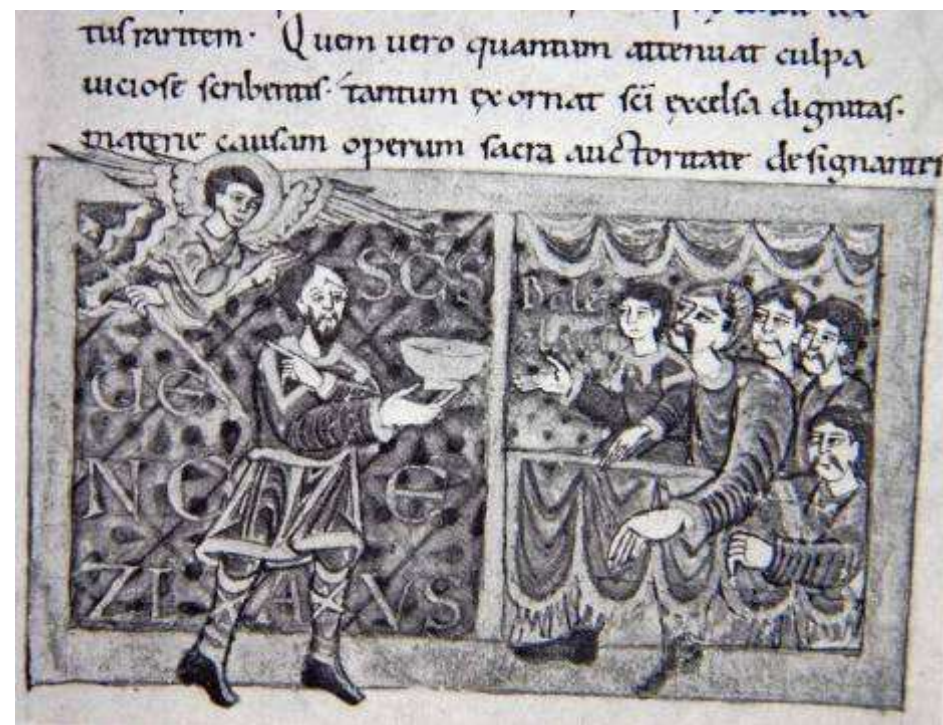 tus raritem. Quem uero quantum attenuat culpa
uiciose scribentis. tantum exornat sci excelsa dignitas.
materie causam operum sacra auctoritate designantur
SCS
Bole
UE
NC E
ZLAVS